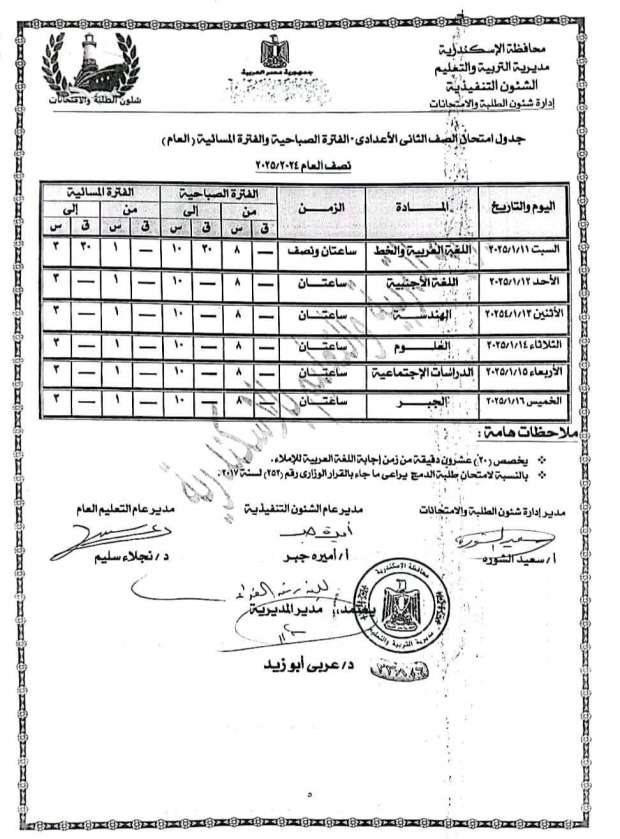 محافظة الإسكندرية
مديرية التربية والتعليم
الشئون التنفيذية
إدارة شئون الطلبة والامتحانات
جمهورية مصر العربية
شئون الطلبة والامتحانات
جدول امتحان الصف الثانى الأعدادى - الفترة الصباحية والفترة المسائية (العام)
نصف العام ٢٠٢٥/٢٠٢٤
اليوم والتاريخ المــادة الزمــن الفترة الصباحية الفترة المسائية
من إلى من إلى
ق س ق س ق س ق س
السبت ٢٠٢٥/١/١١ اللغة العربية والخط ساعتان ونصف — ٨ ٣٠ ١٠ — ١ ٣٠ ٣
الأحد ٢٠٢٥/١/١٢ اللغة الأجنبية ساعتــان — ٨ — ١٠ — ١ — ٣
الأثنين ٢٠٢٥٤/١/١٣ الهندســة ساعتــان — ٨ — ١٠ — ١ — ٣
الثلاثاء ٢٠٢٥/١/١٤ العلــوم ساعتــان — ٨ — ١٠ — ١ — ٣
الأربعاء ٢٠٢٥/١/١٥ الدراسات الإجتماعية ساعتــان — ٨ — ١٠ — ١ — ٣
الخميس ٢٠٢٥/١/١٦ الجبــر ساعتــان — ٨ — ١٠ — ١ — ٣
ملاحظات هامة :
يخصص (٢٠) عشرون دقيقة من زمن إجابة اللغة العربية للإملاء.
بالنسبة لامتحان طلبة الدمج يراعى ما جاء بالقرار الوزارى رقم (٢٥٢) لسنة ٢٠١٧.
مدير إدارة شئون الطلبة والامتحانات
أ/ سعيد الشوره
مدير عام الشئون التنفيذية
أ/ أميره جبر
مدير عام التعليم العام
د/ نجلاء سليم
يعتمد،، مدير المديرية
د/ عربى أبو زيد
محافظة الإسكندرية
مديرية التربية والتعليم
٥